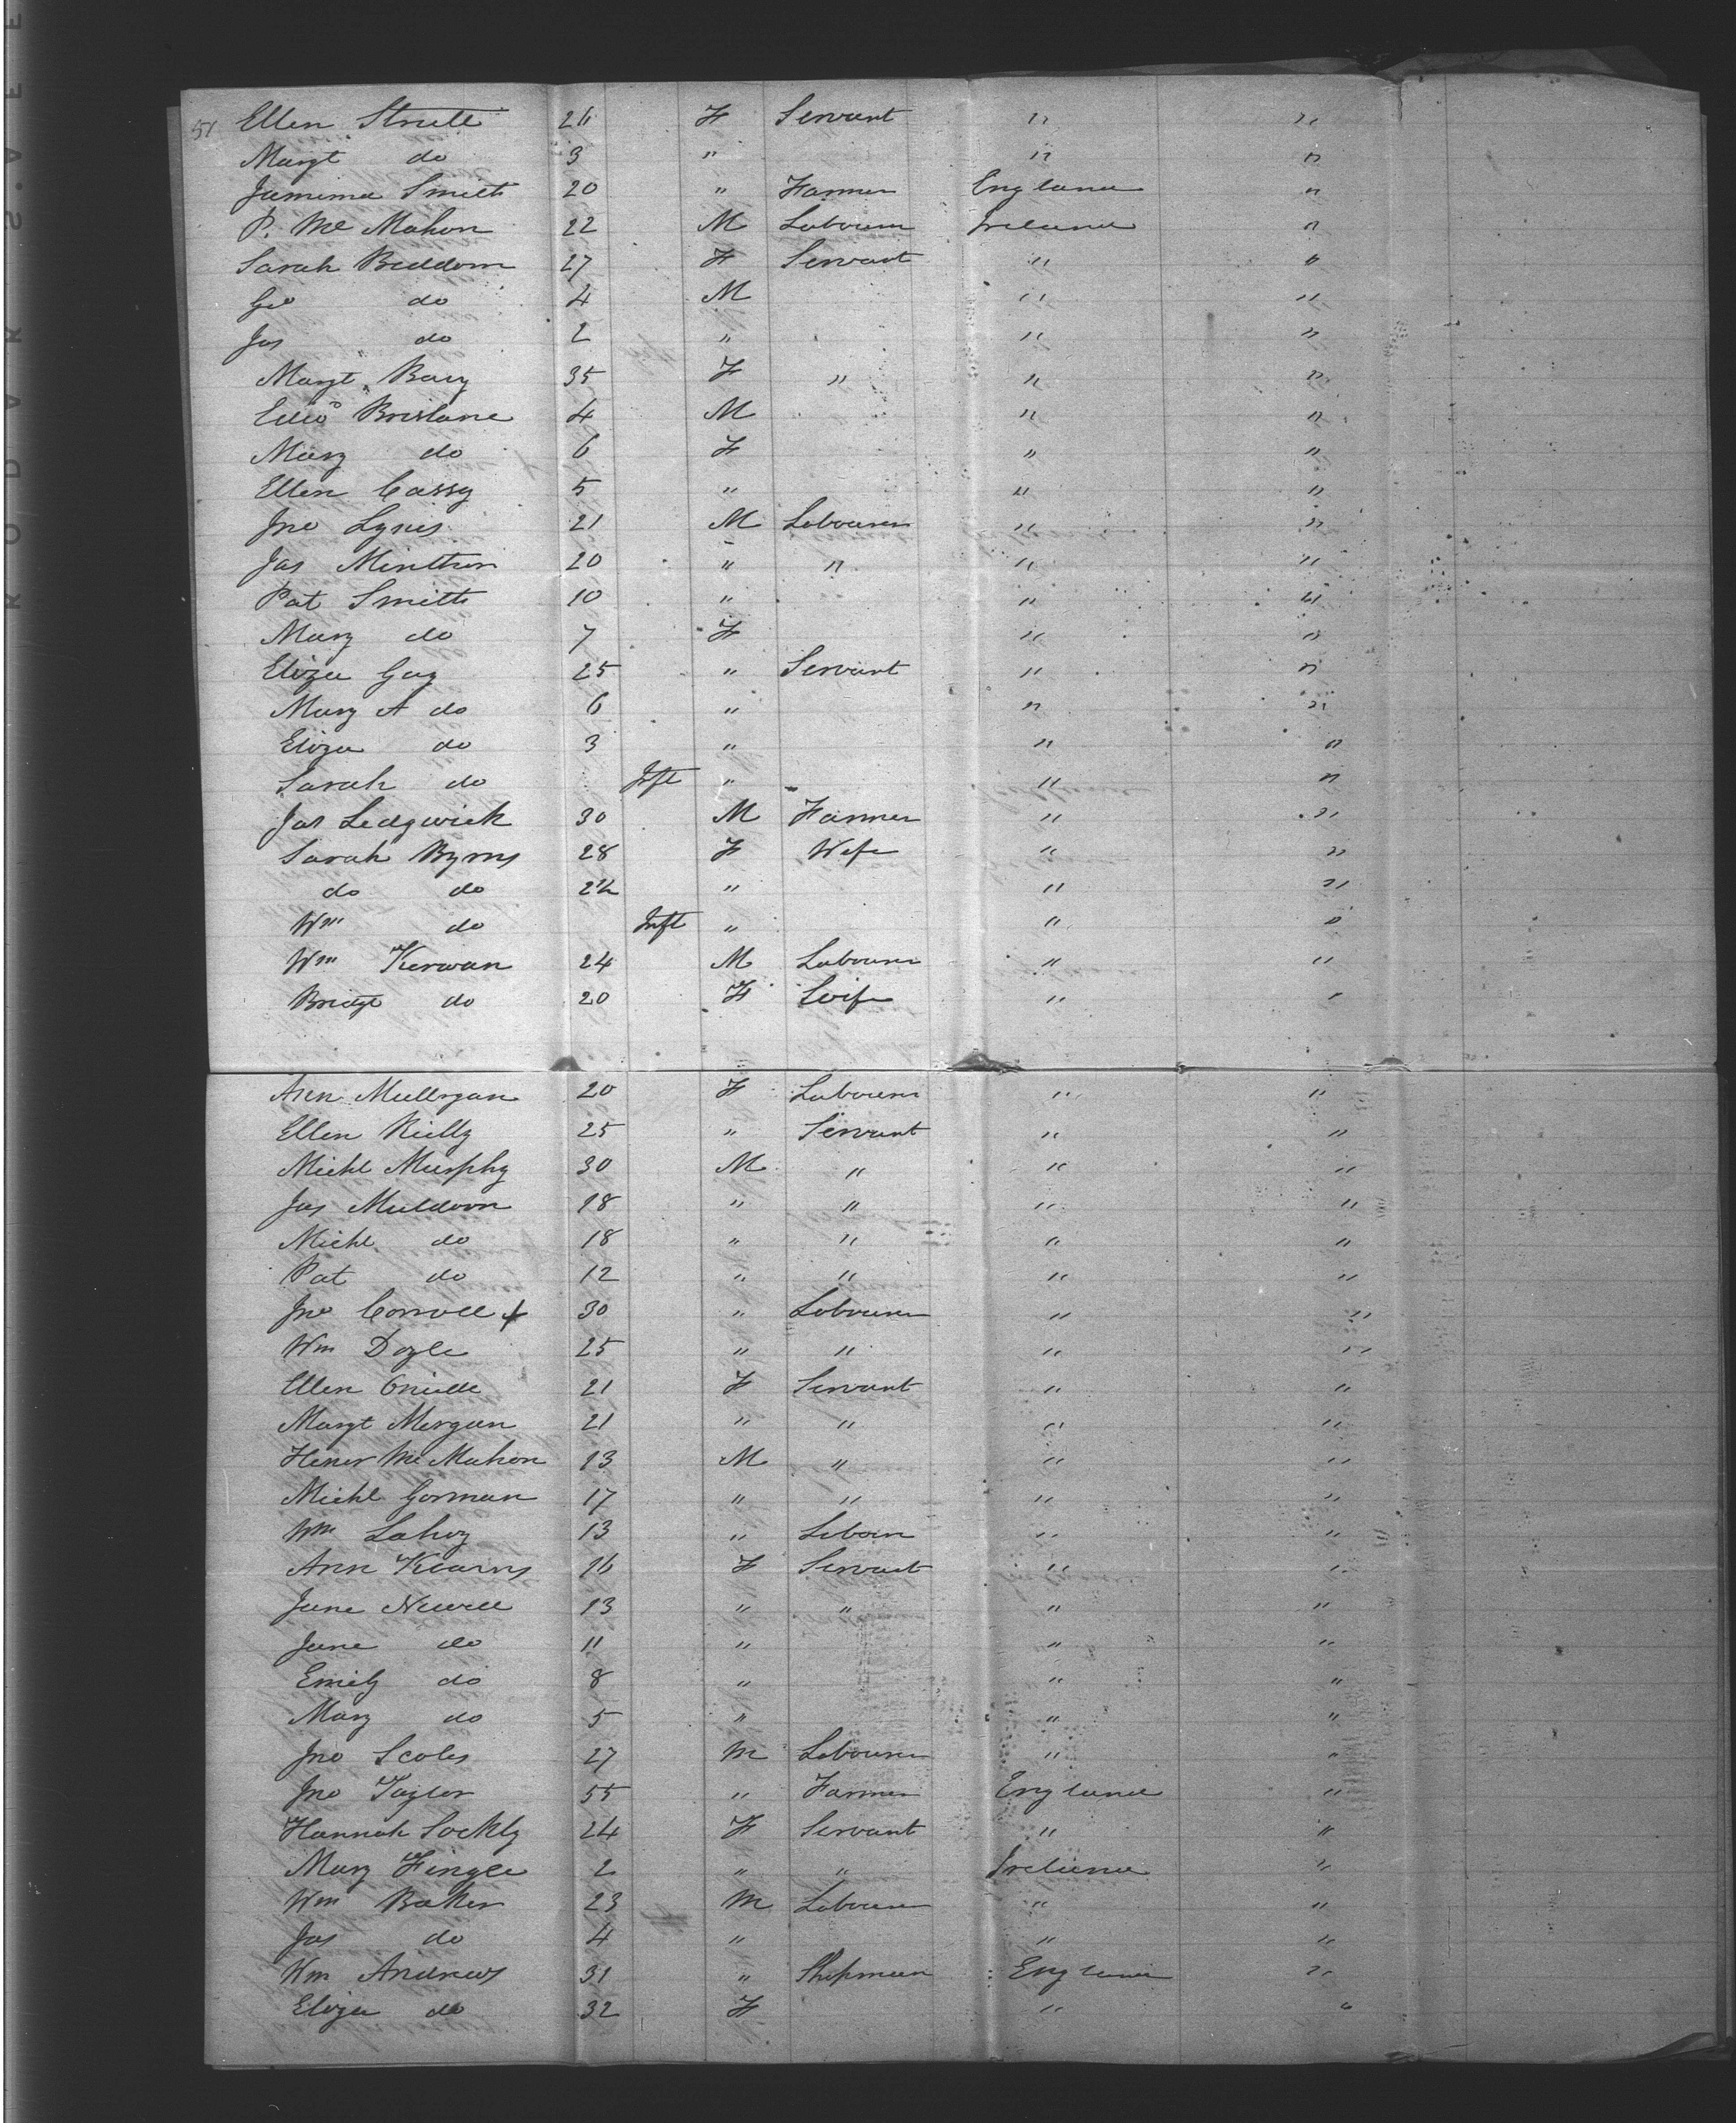 51 Ellen Street 26 F Servant " "
Margt do 3 " " "
Jemima Smith 20 " Farmer England "
P. Mc Mahon 22 M Labourer Ireland "
Sarah Beddom 27 F Servant " "
Geo do 4 M " "
Jas do 2 " " "
Margt Bary 35 F " " "
Edwd Brislane 4 M " "
Mary do 6 F " "
Ellen Cassy 5 " " "
Jno Lynes 21 M Labourer " "
Jas Minthon 20 " " " "
Pat Smith 10 " " "
Mary do 7 F " "
Eliza Gay 25 " Servant " "
Mary A do 6 " " "
Eliza do 3 " " "
Sarah do Inft " " "
Jas Ledgwick 30 M Farmer " "
Sarah Byrns 28 F Wife " "
do do 2½ " " "
Wm do Inft " " "
Wm Kerwan 24 M Labourer " "
Bridgt do 20 F Wife " "
Ann Mullogan 20 F Labourer " "
Ellen Reilly 25 " Servant " "
Michl Murphy 30 M " " "
Jas Muldoon 18 " " " "
Michl do 18 " " " "
Pat do 12 " " " "
Jno Corroll 30 " Labourer " "
Wm Doyle 25 " " " "
Ellen Oneille 21 F Servant " "
Margt Morgan 21 " " " "
Mc Mahon 13 M " " "
Michl Gorman 17 " " " "
Wm Lahey 13 " Labour " "
Ann Kearns 16 F Servant " "
Jane Newell 13 " " " "
Jane do 11 " " "
Emily do 8 " " "
Mary do 5 " " "
Jno Scoles 27 M Labourer " "
Jno Taylor 55 " Farmer England "
Hannah Sockly 24 F Servant " "
Mary Fingle 2 " " Ireland "
Wm Baker 23 M Labourer " "
Jas do 4 " " "
Wm Andrews 31 " Shipman England "
Eliza do 32 F " "